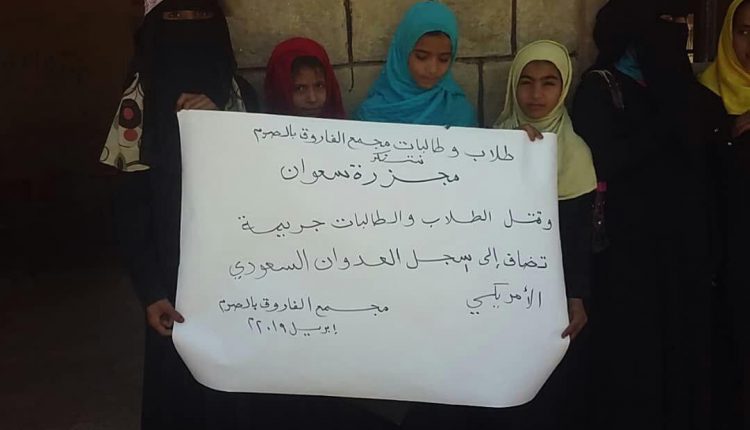 طلاب وطالبات مجمع الفاروق بالصرم
تستنكر
مجزرة سعوان
وقتل الطلاب والطالبات جريمة
تضاف إلى سجل العدوان السعودي
الأمريكي
مجمع الفاروق بالصرم
إبريل ٢٠١٩